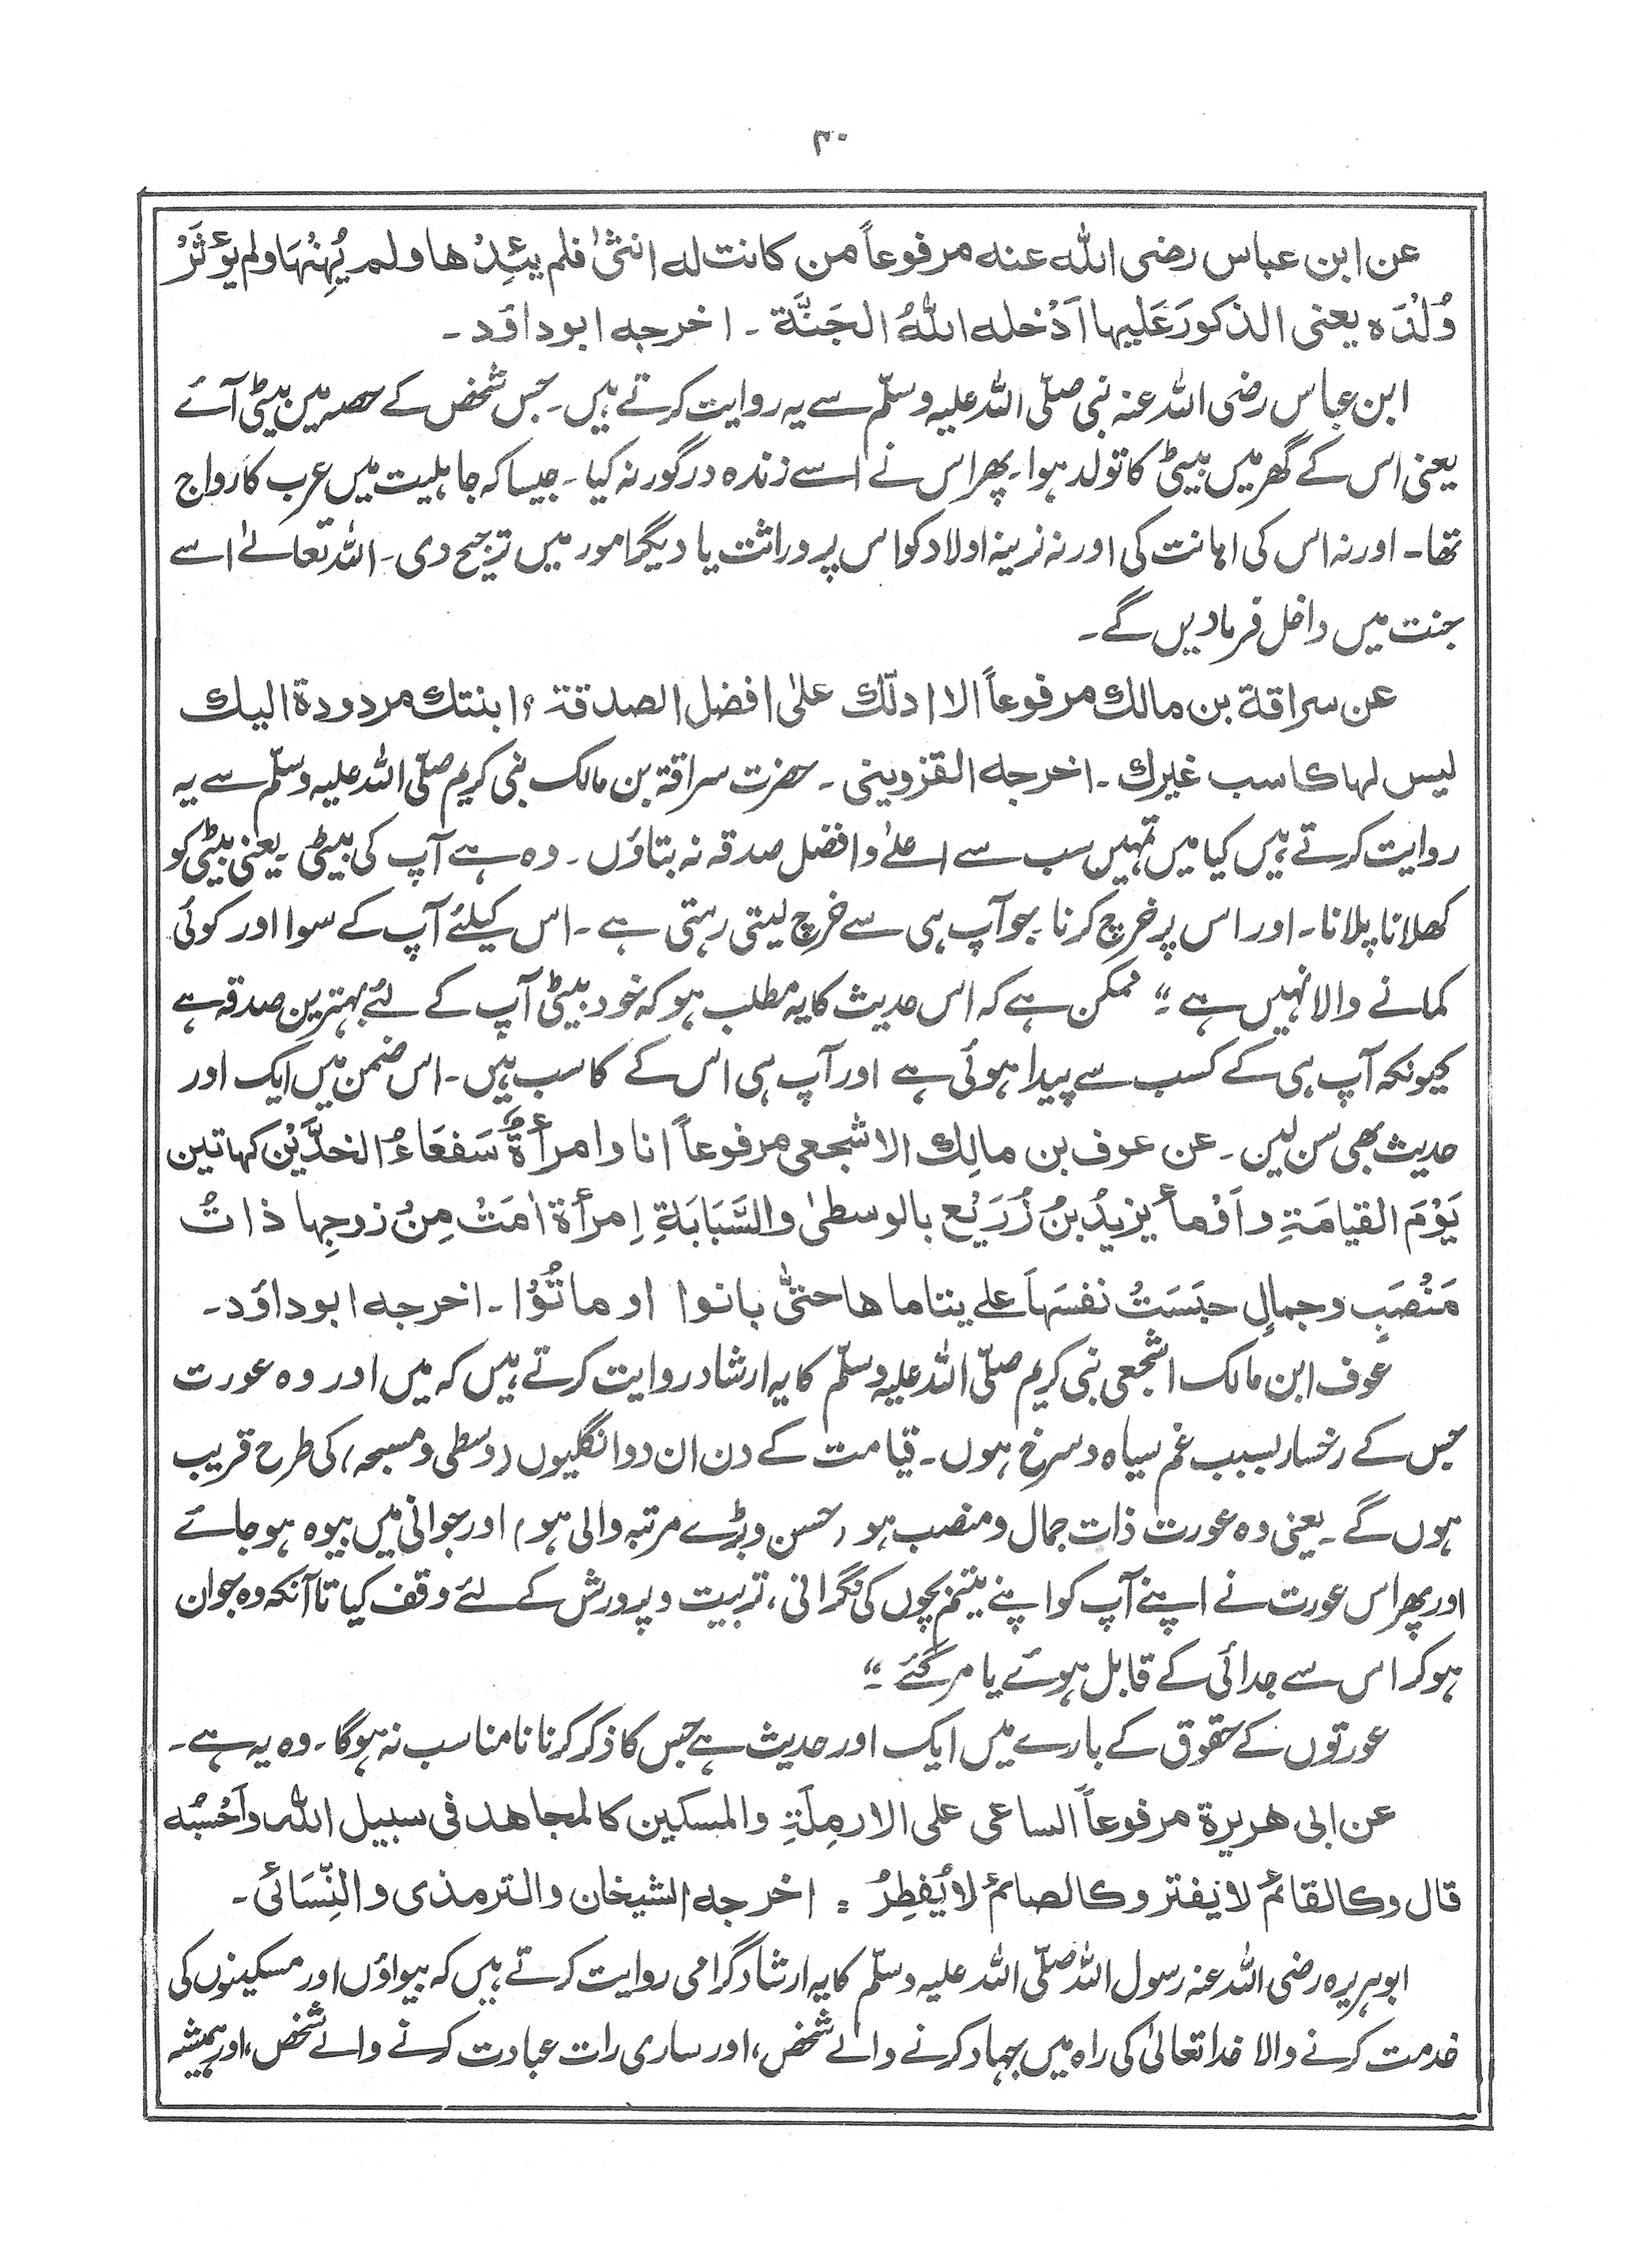 ۳۰
عن ابن عباس رضی اللہ عنہ مرفوعاً من کانت له انثیٰ فلم یئِدْھا ولم یُهِنْهَا ولم یؤثَرْ
وُلْدَہ یعنی الذکورَ عَلَیہا اَدْخله اللهُ الجَنَّة ۔ اخرجه ابوداؤد ۔
ابن عباس رضی اللہ عنہ نبی صلّی اللہ علیہ وسلّم سے یہ روایت کرتے ہیں ۔ جس شخص کے حصہ میں بیٹی آئے
یعنی اس کے گھر میں بیٹی کا تولد ہوا ۔ پھر اس نے اسے زندہ درگور نہ کیا ۔ جیسا کہ جاہلیت میں عرب کا رواج
تھا ۔ اور نہ اس کی اہانت کی اور نہ نرینہ اولاد کو اس پر وراثت یا دیگر امور میں ترجیح دی ۔ اللہ تعالےٰ اسے
جنت میں داخل فرمادیں گے ۔
عن سراقة بن مالك مرفوعاً الا ادلّك علیٰ افضل الصدقة ؟ ابنتك مردودة الیك
لیس لہا کاسب غیرك ۔ اخرجه القزوینی ۔ حضرت سراقۃ بن مالک نبی کریم صلّی اللہ علیہ وسلّم سے یہ
روایت کرتے ہیں کیا میں تمہیں سب سے اعلےٰ و افضل صدقہ نہ بتاؤں ۔ وہ ہے آپ کی بیٹی ۔ یعنی بیٹی کو
کھلانا پلانا ۔ اور اس پر خرچ کرنا جو آپ ہی سے خرچ لیتی رہتی ہے ۔ اس کیلئے آپ کے سوا اور کوئی
کمانے والا نہیں ہے ۔“ ممکن ہے کہ اس حدیث کا یہ مطلب ہو کہ خود بیٹی آپ کے لئے بہترین صدقہ ہے
کیونکہ آپ ہی کے کسب سے پیدا ہوئی ہے اور آپ ہی اس کے کاسب ہیں ۔ اس ضمن میں ایک اور
حدیث بھی سن لیں ۔ عن عوف بن مالِك الاشجعی مرفوعاً انا وامرأةٌ سَفعَاءُ الخدَّیْن کہاتین
یَوْمَ القیامَةِ و اَوْمأ یزیدُ بنُ زُرَیْع بالوسطیٰ والسَّبَابَةِ اِمرأة اٰمَتْ مِنْ زوجِہا ذاتُ
مَنْصَبٍ وجمالٍ حبَسَتْ نفسَہَا علے یتاماھا حتیّٰ بانوا او ماتُوْا ۔ اخرجه ابوداؤد ۔
عوف ابن مالک اشجعی نبی کریم صلّی اللہ علیہ وسلّم کا یہ ارشاد روایت کرتے ہیں کہ میں اور وہ عورت
جس کے رخسار بسبب غم سیاہ و سرخ ہوں ۔ قیامت کے دن ان دو انگلیوں (وسطی و مسبحہ) کی طرح قریب
ہوں گے ۔ یعنی وہ عورت ذات جمال و منصب ہو (حسن و بڑے مرتبہ والی ہو) اور جوانی میں بیوہ ہو جائے
اور پھر اس عورت نے اپنے آپ کو اپنے یتیم بچوں کی نگرانی ، تربیت و پرورش کے لئے وقف کیا تاآنکہ وہ جوان
ہو کر اس سے جدائی کے قابل ہوئے یا مر گئے ۔“
عورتوں کے حقوق کے بارے میں ایک اور حدیث ہے جس کا ذکر کرنا نامناسب نہ ہوگا ۔ وہ یہ ہے ۔
عن ابی ھریرة مرفوعاً الساعی علی الارمِلَةِ والمسکین کالمجاھد فی سبیل اللہ واَحْسبُه
قال وکالقائمُ لا یفتر وکالصائمُ لا یُفطِرُ ۔ اخرجه الشیخان والترمذی والنِّسَائی ۔
ابوہریرہ رضی اللہ عنہ رسول اللہ صلّی اللہ علیہ وسلّم کا یہ ارشاد گرامی روایت کرتے ہیں کہ بیواؤں اور مسکینوں کی
خدمت کرنے والا خدا تعالیٰ کی راہ میں جہاد کرنے والے شخص ، اور ساری رات عبادت کرنے والے شخص ، اور ہمیشہ